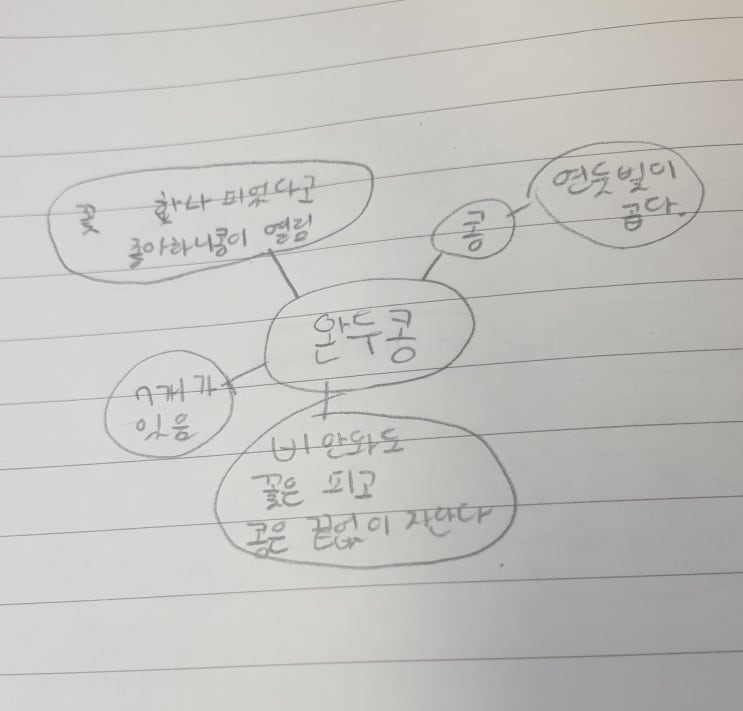 꽃 하나 피었다고
좋아하니콩이 열림
콩
연둣빛이
곱다.
완두콩
7개가
익음
비 안와도
꽃은 피고
콩은 끝없이 자란다